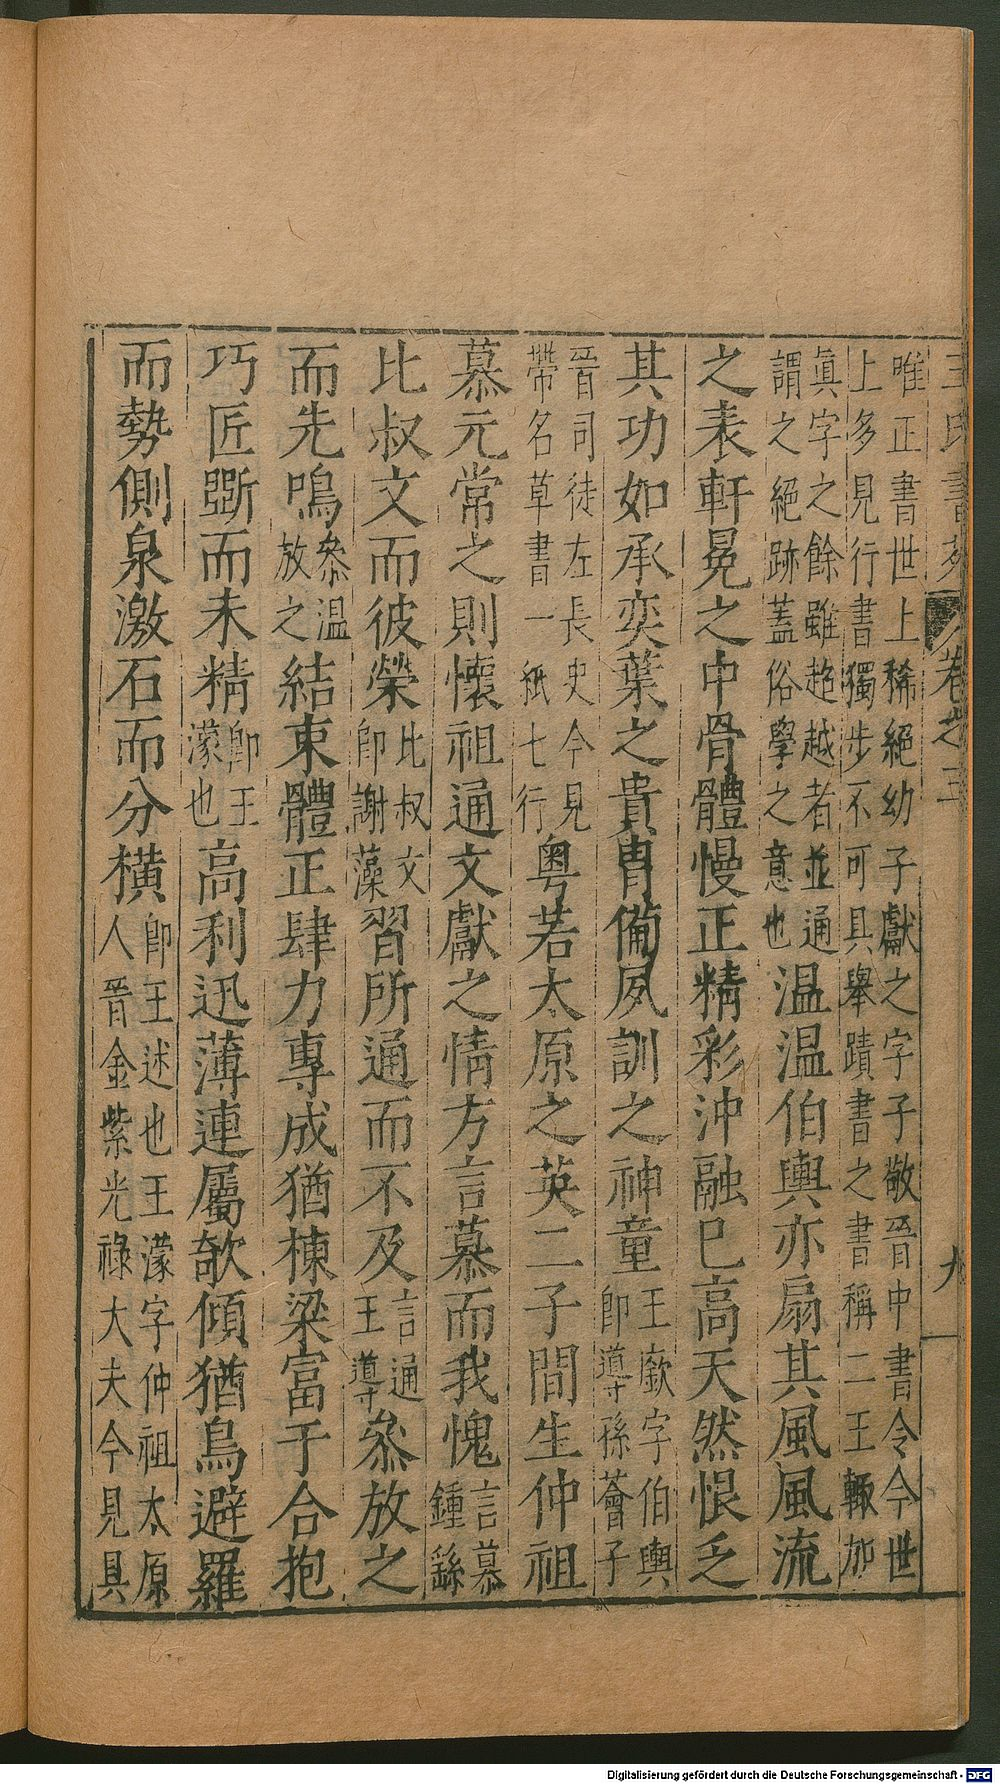 王氏書苑 卷之三 九
唯正書世上稀絕幼子獻之字子敬晉中書令令世
上多見行書獨步不可具舉蹟書之書稱二王輙加
眞字之餘雖超越者並通
謂之絕跡蓋俗學之意也
温温伯輿亦扇其風風流
之表軒冕之中骨體慢正精彩沖融已高天然恨乏
其功如承奕葉之貴胄備夙訓之神童
王廞字伯輿
卽導孫薈子
晉司徒左長史今見
帶名草書一紙七行
粤若太原之英二子間生仲祖
慕元常之則懷祖通文獻之情方言慕而我愧
言慕
鍾繇
比叔文而彼榮
比叔文
卽謝藻
習所通而不及
言通
王導
叅放之
而先鳴
叅温
放之
結束體正肆力專成猶棟梁富于合抱
巧匠斲而未精
卽王
濛也
高利迅薄連屬欹傾猶鳥避羅
而勢側泉激石而分橫
卽王述也王濛字仲祖太原
人晉金紫光祿大夫今見具
Digitalisierung gefördert durch die Deutsche Forschungsgemeinschaft - DFG